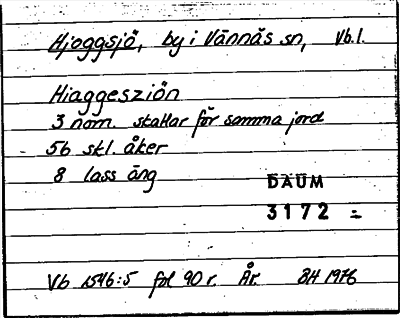 Hjoggsjö, by i Vännäs sn, Vb.l.
Hiaggesziön
3 nom. skattar för samma jord
56 skl. åker
8 lass äng
DAUM
3172 =
Vb 1546:5 fol 90 r. År. BH 1976